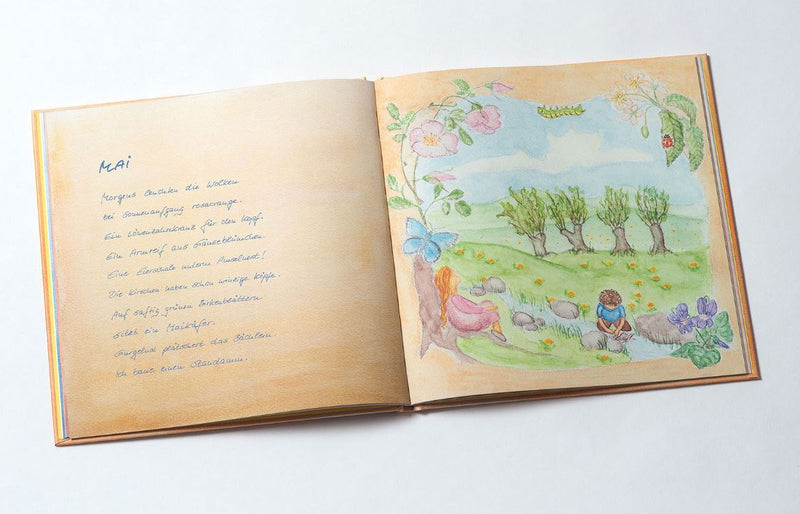 Mai
Morgens leuchten die Wolken
bei Sonnenaufgang rosaorange.
Ein Löwenzahnkranz für den Kopf.
Ein Armreif aus Gänseblümchen.
Eine Eierschale unterm Amselnest!
Die Kirschen haben schon winzige Köpfe.
Auf saftig grünen Birkenblättern
sitzt ein Maikäfer.
Gurgelnd plätschert das Bächlein.
Ich baue einen Staudamm.